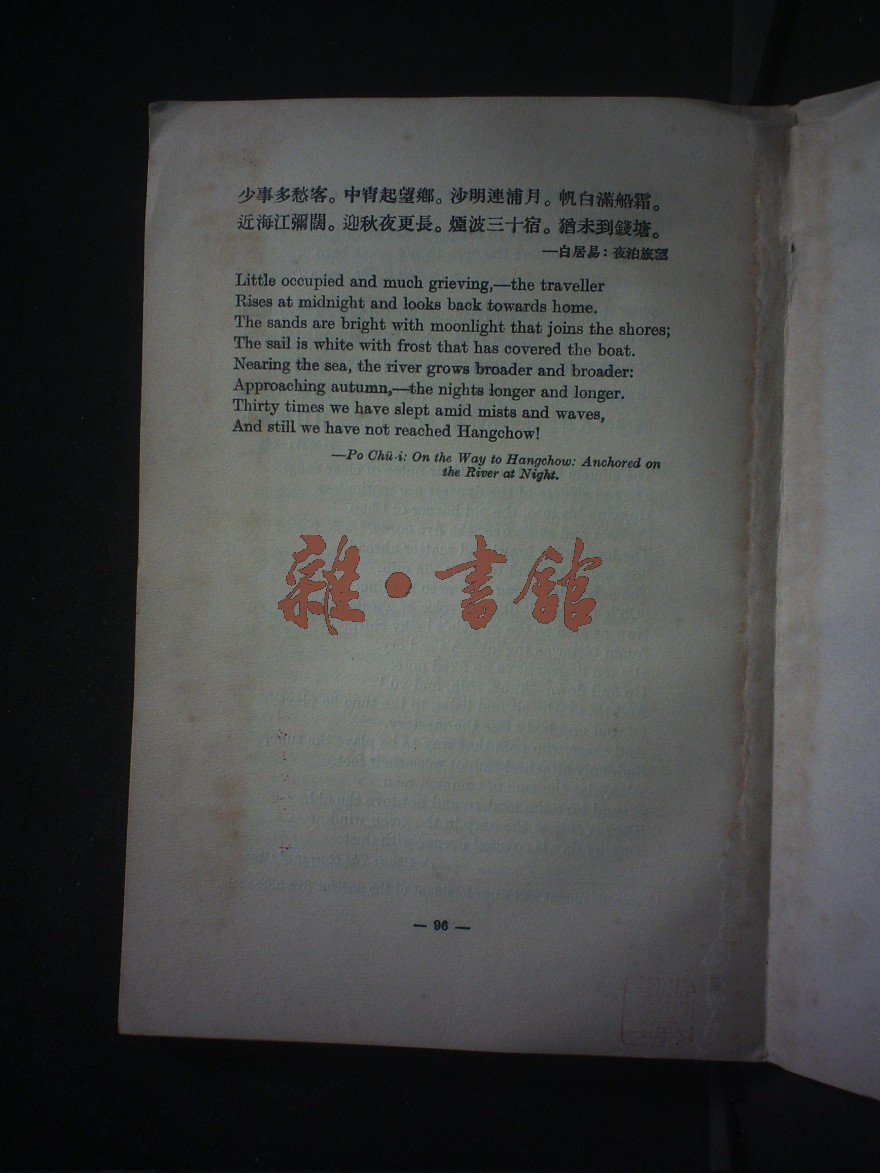 少事多愁客。中宵起望鄉。沙明連浦月。帆白滿船霜。
近海江彌闊。迎秋夜更長。煙波三十宿。猶未到錢塘。
—白居易：夜泊旅望
Little occupied and much grieving,—the traveller
Rises at midnight and looks back towards home.
The sands are bright with moonlight that joins the shores;
The sail is white with frost that has covered the boat.
Nearing the sea, the river grows broader and broader:
Approaching autumn,—the nights longer and longer.
Thirty times we have slept amid mists and waves,
And still we have not reached Hangchow!
—Po Chü-i: On the Way to Hangchow: Anchored on
the River at Night.
雜·書館
— 96 —